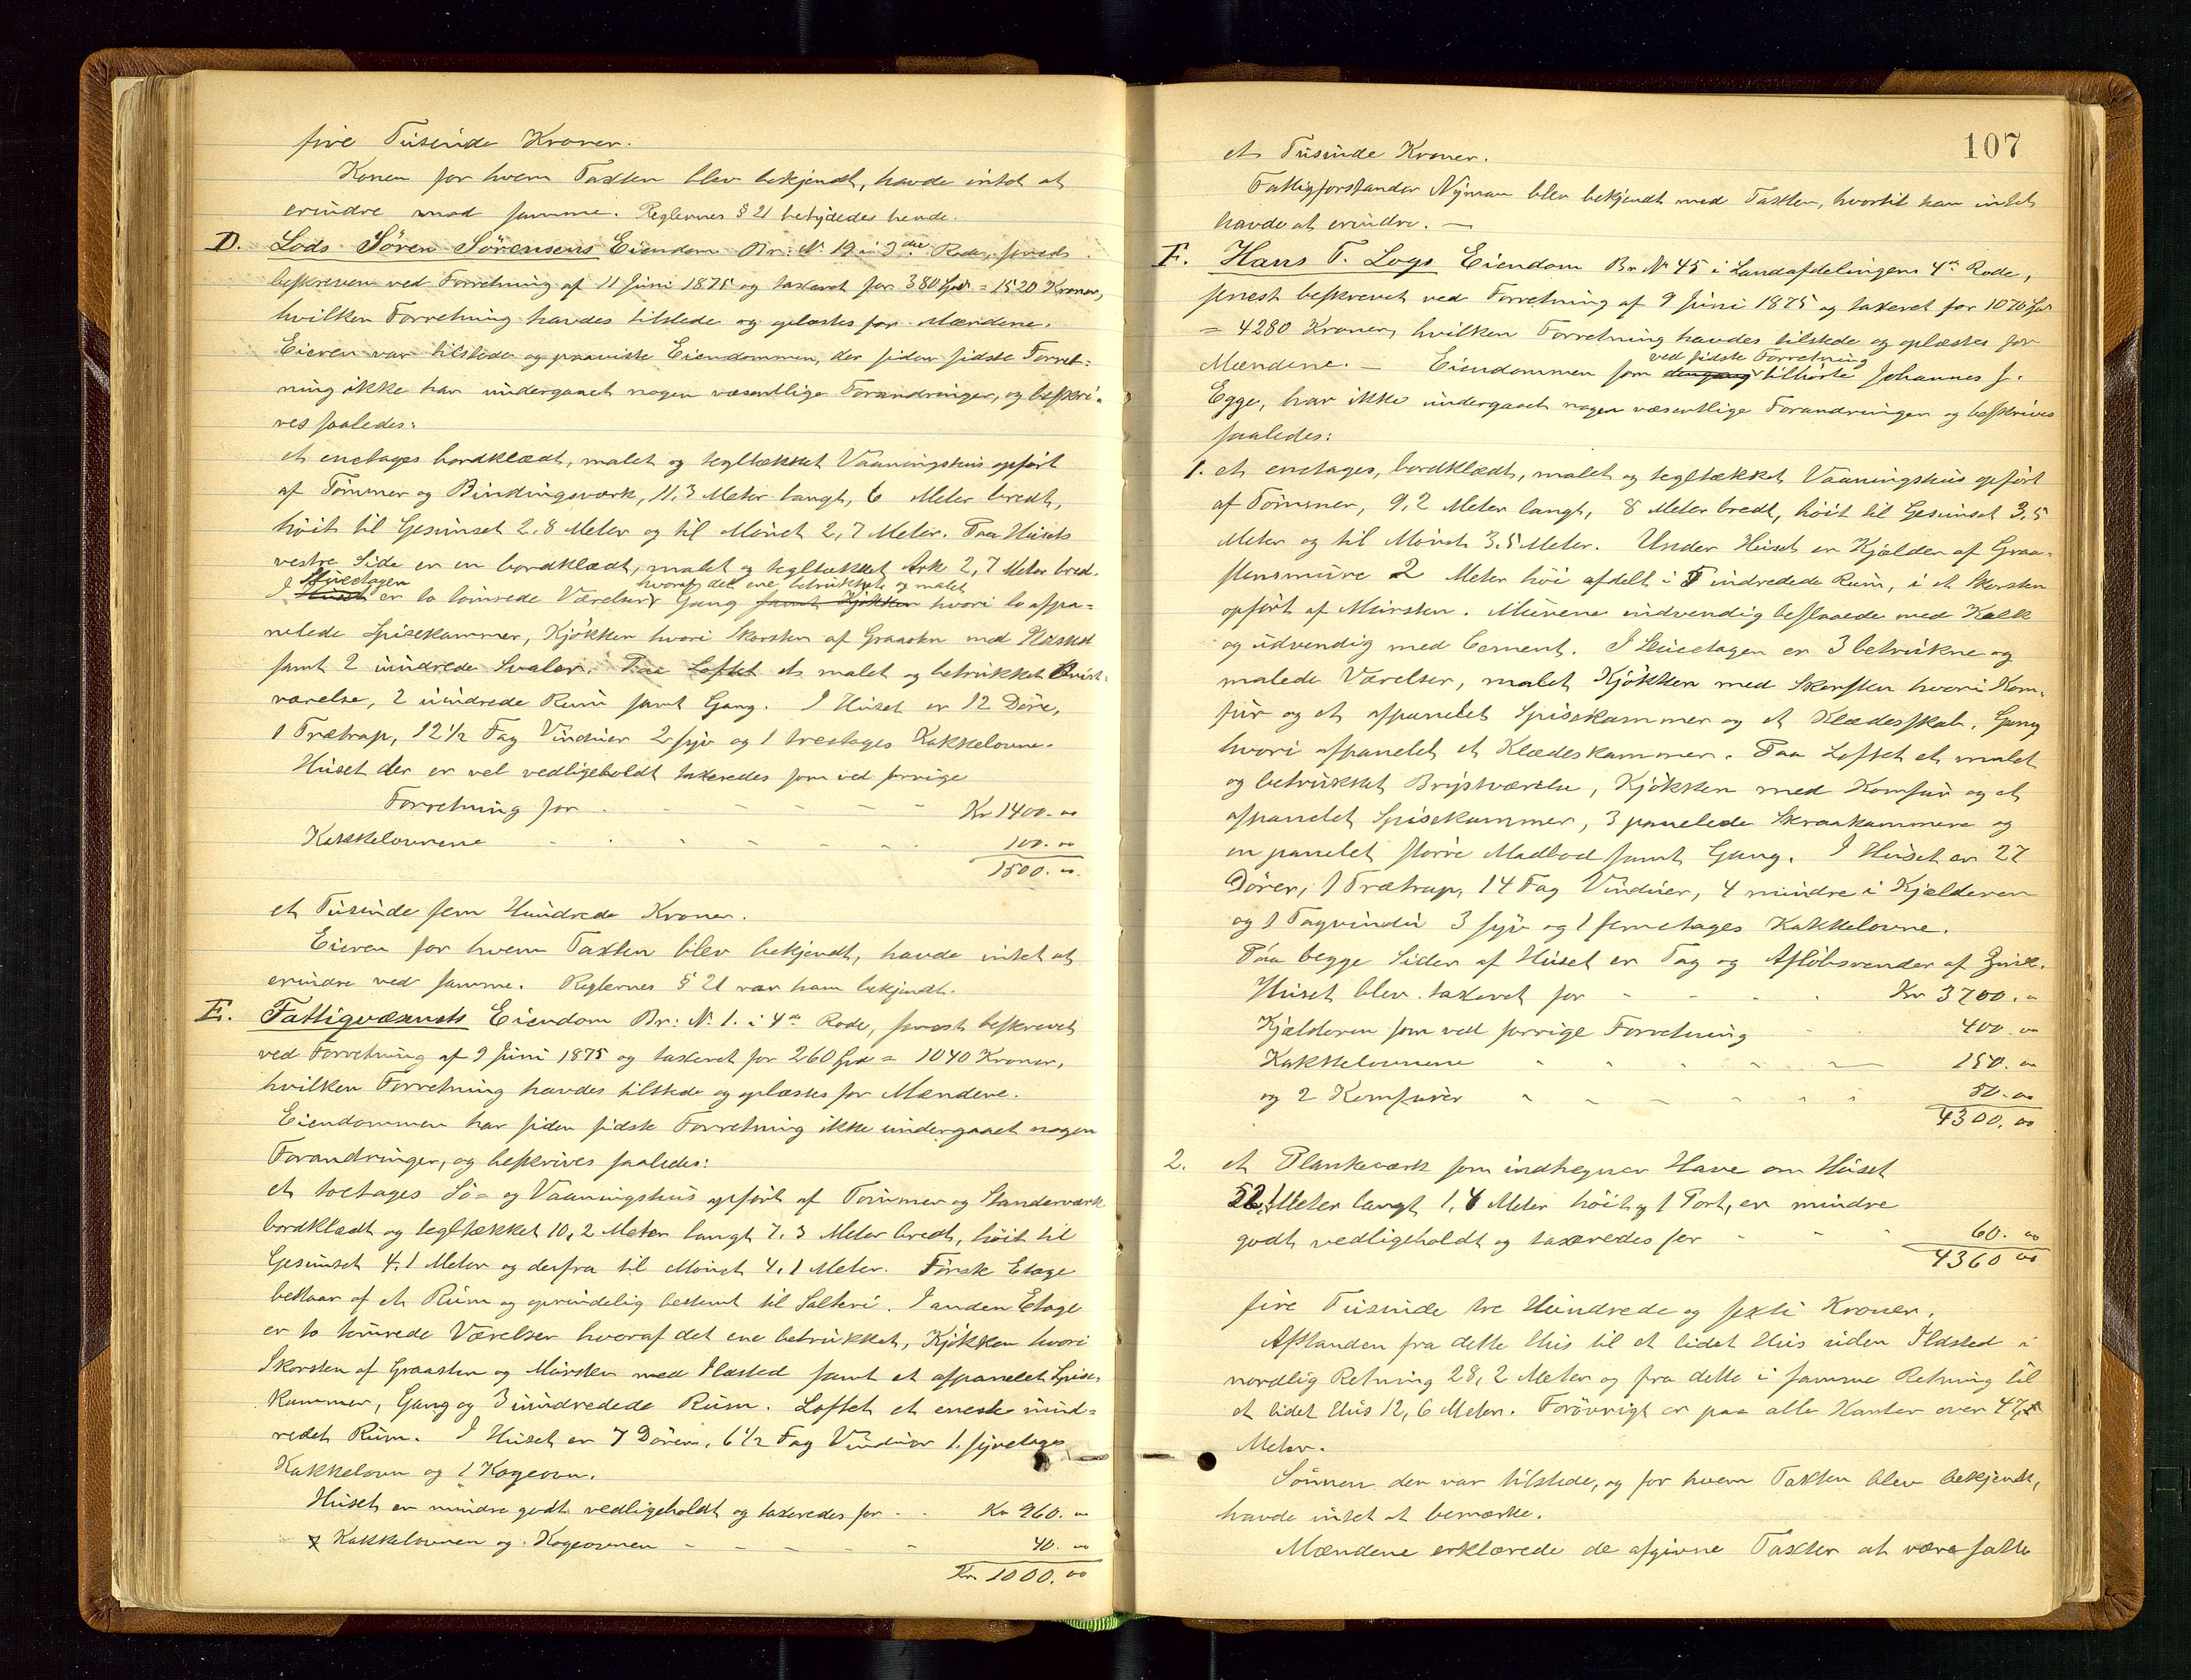 fire Tusinde Kroner.
Konen for hvem Taxten blev bekjendt, havde intet at
erindre mod samme. Reglernes § 21 betydedes hende.
D. Lods Sören Sörensens Eiendom Br: No 19 i 3die Rode, senest
beskreven ved Forretning af 11 Juni 1875 og taxeret for 380 Spd = 1520 Kroner,
hvilken Forretning havdes tilstede og oplæstes for Mændene.
Eieren var tilstede og paaviste Eiendommen, der siden sidste Forret=
ning ikke har undergaaet nogen væsentlige Forandringer, og beskri-
ves saaledes:
et enetages bordklædt, malet og tegltækket Vaaningshus opført
af Tømmer og Bindingsværk, 11,3 Meter langt, 6 Meter bredt,
höit til Gesimset 2,8 Meter og til Mönet 2,7 Meter. Paa Husets
vestre Side er en bordklædt, malet og tegltækket Ark 2,7 Meter bred.
Stuetagen hvoraf det ene betrukket og malet
I Huset er to tömrede Værelser, Gang samt Kjökken hvori to afpa=
nelede Spisekammer, Kjökken hvori Skorsten af Graasten med Ildsted
samt 2 uindrede Svaler. Paa Loftet et malet og betrukket Kvist-
værelse, 2 uindrede Rum samt Gang. I Huset er 12 Döre,
1 Trætrap, 12 1/2 Fag Vinduer 2 syv og 1 treetages Kakkelovne.
Huset der er vel vedligeholdt taxeredes som ved forrige
Forretning for - - - - - Kr 1400. 00
Kakkelovnene - - - - - - 100. 00
1500. 00
et Tusinde fem Hundrede Kroner.
Eieren for hvem Taxten blev bekjendt, havde intet at
erindre ved samme. Reglernes § 21 var ham bekjendt.
E. Fattigvæsenets Eiendom Br: No 1. i 4de Rode, senest beskrevet
ved Forretning af 9 Juni 1875 og taxeret for 260 Spd = 1040 Kroner,
hvilken Forretning havdes tilstede og oplæstes for Mændene.
Eiendommen har siden sidste Forretning ikke undergaaet nogen
Forandringer, og beskrives saaledes:
et toetages Sö= og Vaaningshus opfört af Tömmer og Standerværk
bordklædt og tegltækket 10,2 Meter langt 7,3 Meter bredt, höit til
Gesimset 4,1 Meter og derfra til Mönet 4,1 Meter. Förste Etage
bestaar af et Rum og oprindelig bestemt til Salteri. I anden Etage
er to tömrede Værelser hvoraf det ene betrukket, Kjökken hvori
Skorsten af Graasten og Mursten med Ildsted samt et afpanelet Spise-
kammer, Gang og 3 uindredede Rum. Loftet et eneste uind=
redet Rum. I Huset er 7 Dören, 6 1/2 Fag Vinduer 1. syvetages
Kakkelovn og 1 Kogeovn.
Huset er mindre godt vedligeholdt og taxeredes for - - Kr 960. 00
Kakkelovnen og Kogeovnen - - - - - 40. 00
Kr. 1000. 00
107
et Tusinde Kroner.
Fattigforstander Nyman blev bekjendt med Taxten, hvortil han intet
havde at erindre. —
F. Hans T. Logs Eiendom Br No 45 i Landafdelingens 4de Rode,
senest beskrevet ved Forretning af 9 Juni 1875 og taxeret for 1070 Spd
= 4280 Kroner, hvilken Forretning havdes tilstede og oplæstes for
ved sidste Forretning
Mændene. — Eiendommen som dengang tilhörte Johannes J.
Egge, har ikke undergaaet nogen væsentlige Forandringer og beskrives
saaledes:
1. et enetages, bordklædt, malet og tegltækket Vaaningshus opfört
af Tömmer, 9,2 Meter langt, 8 Meter bredt, höit til Gesimset 3,5
Meter og til Mönet 3,5 Meter. Under Huset er Kjælder af Graa-
stensmure 2 Meter höi afdelt i 5 indredede Rum, i et Skorsten
opfört af Mursten. Murene indvendig beslaaede med Kalk
og udvendig med Cement. I Stuetagen er 3 betrukne og
malede Værelser, malet Kjökken med Skorsten hvori Kom-
fur og et afpanelet Spisekammer og et Klædesskab. Gang
hvori afpanelet et Klædeskammer. Paa Loftet et malet
og betrukket Brystværelse, Kjökken med Komfur og et
afpanelet Spisekammer, 3 panelede Skraakammere og
en panelet större Madbod samt Gang. I Huset er 27
Dörer, 1 Trætrap, 14 Fag Vinduer, 4 mindre i Kjælderen
og 1 Tagvindu 3 syv og 1 femetages Kakkelovne.
Paa begge Sider af Huset er Tag og Aflöbsrender af Zink.
Huset blev taxeret for - - - Kr 3700. 00
Kjælderen som ved forrige Forretning - - 400. 00
Kakkelovnene - - - - - 150. 00
og 2 Komfurer - - - - - - 50. 00
4300. 00
2. et Plankeværk som indhegner Have om Huset
52,1 Meter langt 1,4 Meter höit og 1 Port, er mindre
godt vedligeholdt og taxeredes for - - - 60. 00
4360 00
fire Tusinde tre Hundrede og sexti Kroner.
Afstanden fra dette Hus til et lidet Hus uden Ildsted i
nordlig Retning 28,2 Meter og fra dette i samme Retning til
et lidet Hus 12,6 Meter. Forövrigt er paa alle Kanter over 47
Meter.
Sönnen der var tilstede, og for hvem Taxten blev bekjendt,
havde intet at bemærke.
Mændene erklærede de afgivne Taxter at være satte